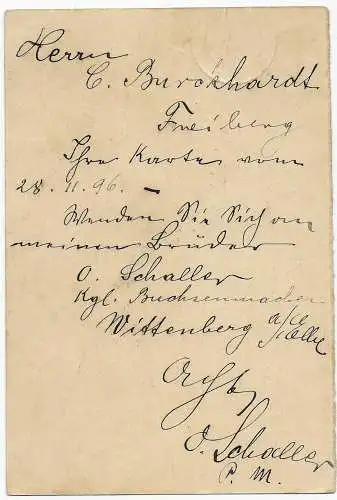 Herrn
C. Burckhardt
Freiberg
Ihre Karte vom
28. 11. 96. –
Wenden Sie Sich an
meinen Brüder
O. Schaller
Kgl. Büchsenmacher
Wittenberg a/d Elbe
O. Schaller
P. M.